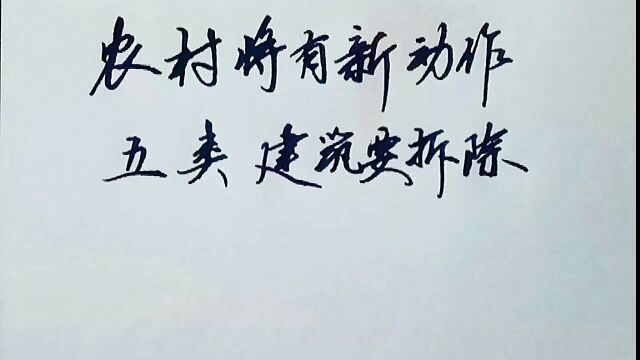 农村将有新动作
五类建筑要拆除